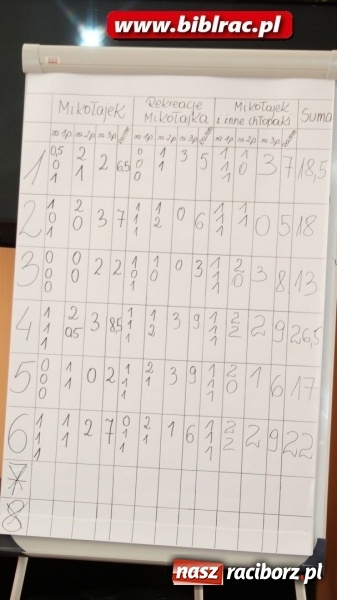 www.biblrac.pl
Mikołajek Rekreacje Mikołajka Mikołajek i inne chłopaki Suma
za 1p za 2p za 3p razem za 1p za 2p za 3p razem za 1p za 2p za 3p razem
1 0,5 0 1 2 1 2 6,5 0 0 0 1 1 3 5 1 1 1 1 0 3 7 18,5
2 1 0 0 2 0 3 7 1 1 1 1 2 0 6 1 1 1 1 1 0 5 18
3 0 0 0 0 0 2 2 1 0 1 1 0 0 3 1 1 1 2 0 3 8 13
4 1 1 1 2 0,5 3 8,5 1 1 1 1 2 3 9 1 1 1 2 2 2 9 26,5
5 0 0 0 1 1 0 2 1 1 1 2 1 3 9 1 1 1 2 0 1 6 17
6 1 1 1 1 1 2 7 0 1 1 2 1 1 6 1 1 1 2 2 2 9 22
7
8
nasz raciborz.pl